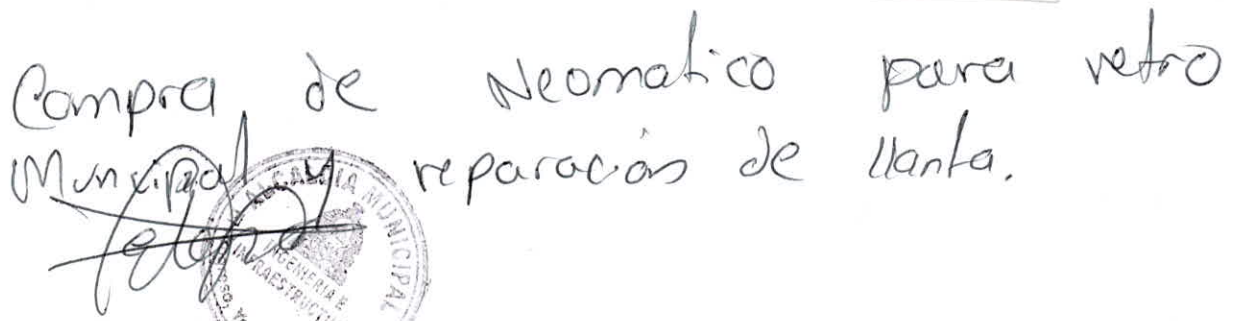 Compra de Neomatico para retro
Municipal y reparación de llanta.
ALCALDIA MUNICIPAL
INGENIERIA E